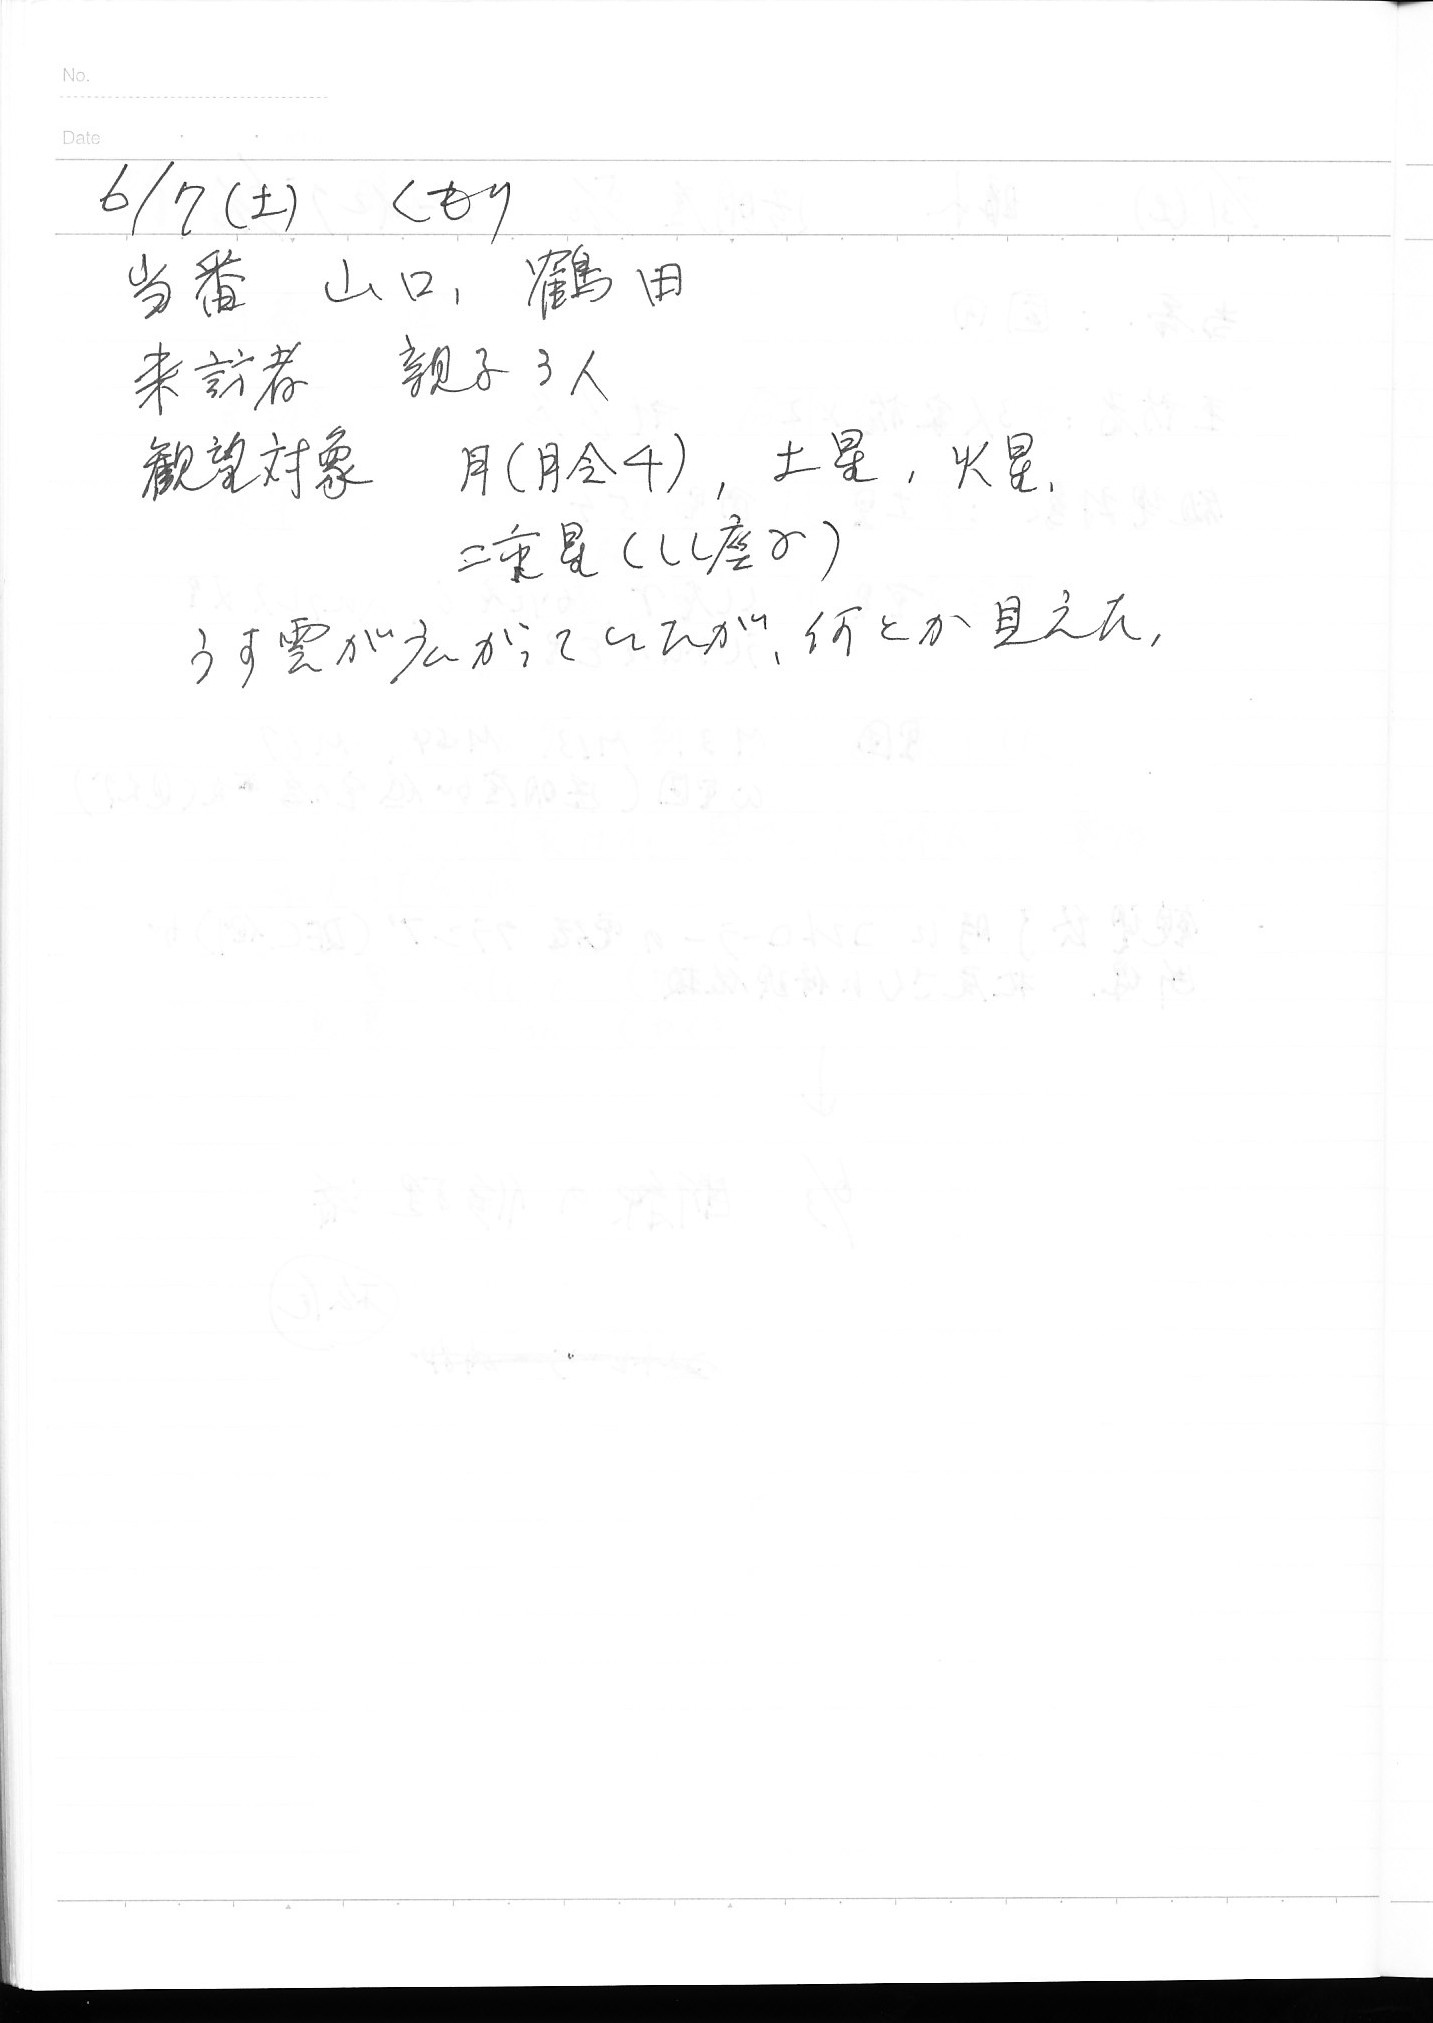 No.
Date
6/7(土) くもり
当番 山口, 鶴田
来訪者 親子3人
観望対象 月(月令4), 土星, 火星,
二重星(しし座γ)
うす雲が広がっていたが、何とか見えた.